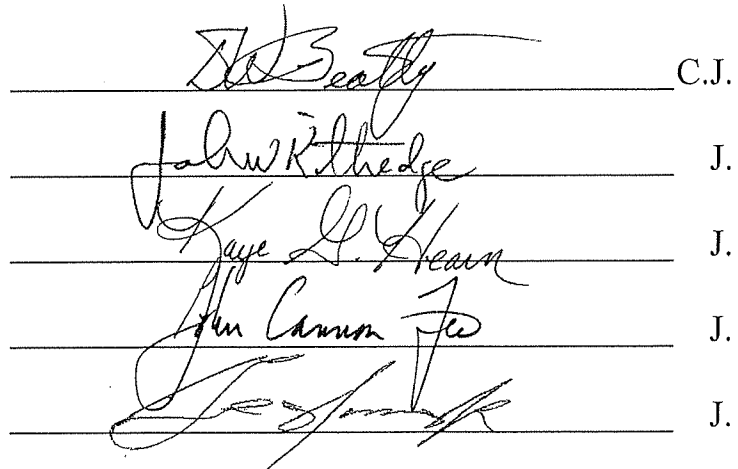 DW Beatty C.J.
John W Kittredge J.
Kaye G. Hearn J.
Cannon Few J.
J.